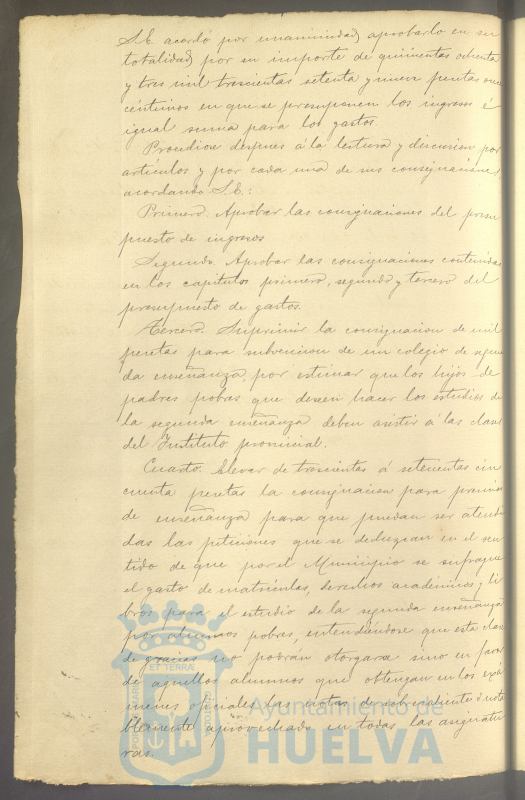 S.E. acordó por unanimidad aprobarlo en su
totalidad por su importe de quinientas ochenta
y tres mil trescientas setenta y nueve pesetas once
centimos en que se presuponen los ingresos é
igual suma para los gastos.
Procediose despues á la lectura y discusion por
articulos y por cada una de sus consignaciones,
acordando S.E.:
Primero. Aprobar las consignaciones del presu
puesto de ingresos
Segundo. Aprobar las consignaciones contenidas
en los capitulos primero, segundo y tercero del
presupuesto de gastos.
Tercero. Suprimir la consignacion de mil
pesetas para subvencion de un colegio de segun
da enseñanza, por estimar que los hijos de
padres pobres que deseen hacer los estudios de
la segunda enseñanza deben asistir á las clases
del Instituto provincial.
Cuarto. Elevar de trescientas á setecientas cin
cuenta pesetas la consignacion para premios
de enseñanza para que puedan ser atendi
das las peticiones que se deduzcan en el sen
tido de que por el Municipio se sufrague
el gasto de matriculas, derechos academicos y li
bros para el estudio de la segunda enseñanza
por alumnos pobres, entendiendose que esta clase
de gracias no podrán otorgarse sino en favor
de aquellos alumnos que obtengan en los exá
menes oficiales las notas de sobresaliente ó nota
blemente aprovechado en todas las asignatu
ras.
Ayuntamiento de
HUELVA